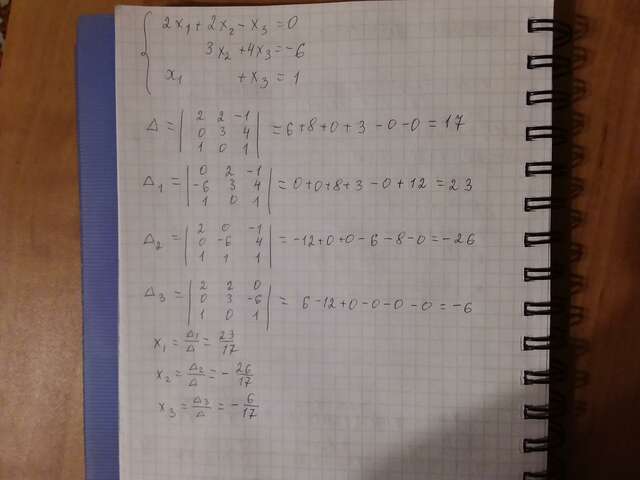 2x₁ + 2x₂ - x₃ = 0
3x₂ + 4x₃ = -6
x₁ + x₃ = 1
Δ = | 2 2 -1 |
| 0 3 4 | = 6+8+0+3-0-0 = 17
| 1 0 1 |
Δ₁ = | 0 2 -1 |
| -6 3 4 | = 0+0+8+3-0+12 = 23
| 1 0 1 |
Δ₂ = | 2 0 -1 |
| 0 -6 4 | = -12+0+0-6-8-0 = -26
| 1 1 1 |
Δ₃ = | 2 2 0 |
| 0 3 -6 | = 6-12+0-0-0-0 = -6
| 1 0 1 |
x₁ = Δ₁/Δ = 23/17
x₂ = Δ₂/Δ = -26/17
x₃ = Δ₃/Δ = -6/17